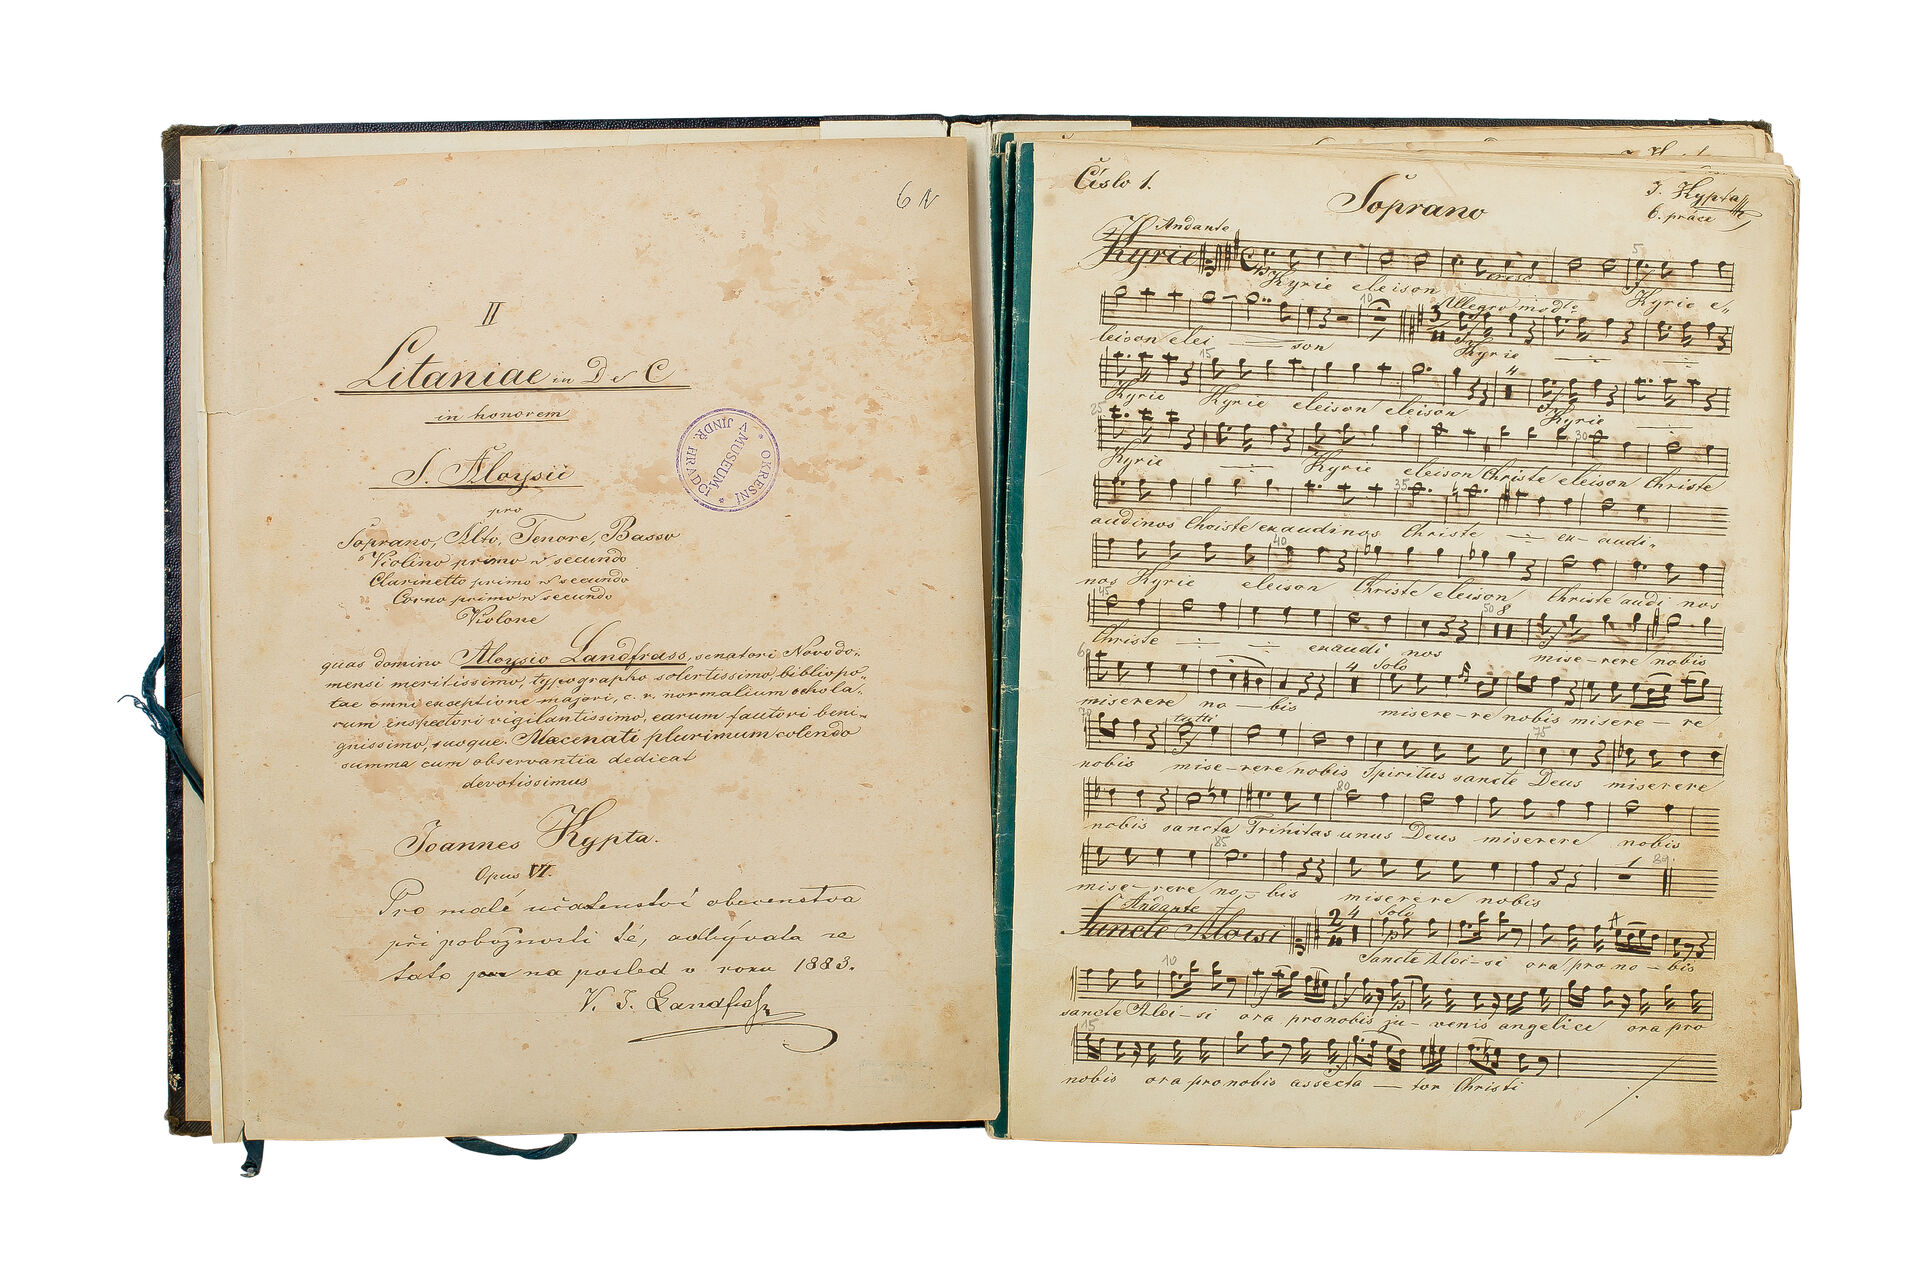 6 N
II
Litaniae in D et C
in honorem
S. Aloysii
pro
Soprano, Alto, Tenore, Basso
Violino primo et secundo
Clarinetto primo et secundo
Corno primo et secundo
Violone
quas domino Aloysio Landfrass, senatori Novodo-
mensi meritissimo, typographo solertissimo, bibliopo-
lae omni exceptione majori, c. r. normalium schola-
rum inspectori vigilantissimo, earum fautori beni-
gnissimo, suoque Maecenati plurimum colendo
summa cum observantia dedicat
devotissimus
Joannes Kypta.
Opus VI.
Pro malé účastenství obecenstva
při pobožnosti té, odbývala se
tato na posled v roku 1883.
V. J. Landfraß
* OKRESNÍ * MUSEUM V JINDŘ. HRADCI
Číslo 1.
Soprano
J. Kypta
6. práce
Andante
Kyrie
Kyrie eleison cresc Kyrie e-
5
10
Allegro modto
leison elei - son Kyrie
15
4
Kyrie Kyrie eleison eleison Kyrie
25
30
Kyrie Kyrie eleison Christe eleison Christe
35
audinos Christe exaudinos Christe ex-audi-
40
nos Kyrie eleison Christe eleison Christe audi nos
45
50 8
Christe exaudi nos mise-rere nobis
60
4 Solo
miserere no-bis misere-re nobis misere-re
70
tutti
75
nobis mise-rere nobis Spiritus sancte Deus miserere
80
nobis sancta Trinitas unus Deus miserere nobis
85
1 89.
mise-rere no-bis miserere nobis
Andante
Sancte Aloisi
4 Solo
Sancte Aloi-si ora pro no-bis
10
sancte Aloi-si ora pro nobis ju-venis angelice ora pro
15
nobis ora pro nobis assecta-tor Christi